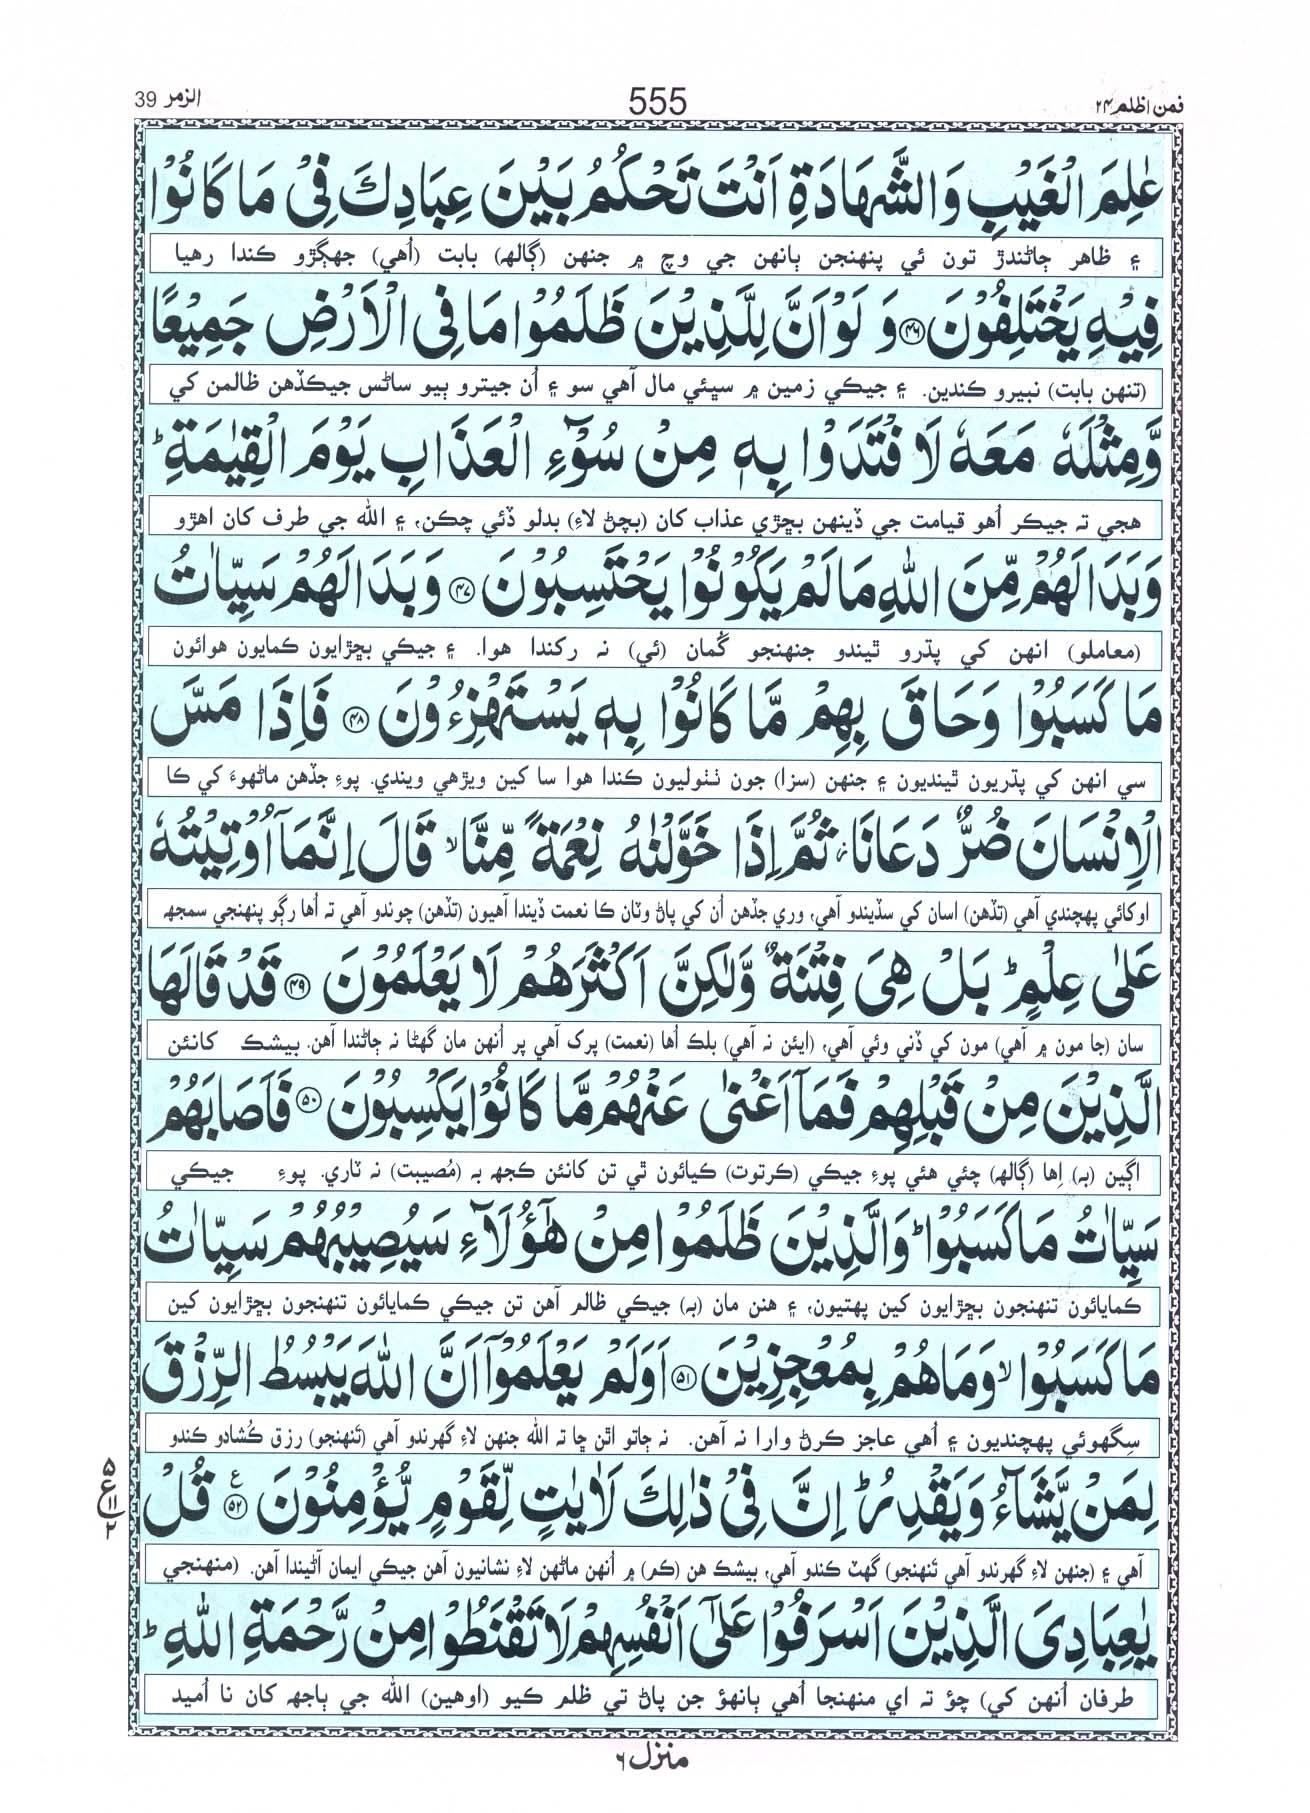 فمن اظلم ۲۴ 555 الزمر 39
عٰلِمَ الْغَيْبِ وَالشَّهَادَةِ اَنْتَ تَحْكُمُ بَيْنَ عِبَادِكَ فِيْ مَا كَانُوْا
۽ ظاهر ڄاڻندڙ تون ئي پنهنجن ٻانهن جي وچ ۾ جنهن (ڳالهہ) بابت (اُهي) جهڳڙو ڪندا رهيا
فِيْهِ يَخْتَلِفُوْنَ ۴۶ وَ لَوْ اَنَّ لِلَّذِيْنَ ظَلَمُوْا مَا فِي الْاَرْضِ جَمِيْعًا
(تنهن بابت) نبيرو ڪندين. ۽ جيڪي زمين ۾ سڀئي مال آهي سو ۽ اُن جيترو ٻيو ساڻس جيڪڏهن ظالمن کي
وَّمِثْلَهٗ مَعَهٗ لَا فْتَدَوْا بِهٖ مِنْ سُوْٓءِ الْعَذَابِ يَوْمَ الْقِيٰمَةِ ؕ
هجي تہ جيڪر اُهو قيامت جي ڏينهن بڇڙي عذاب کان (بچڻ لاءِ) بدلو ڏئي ڇڪن، ۽ الله جي طرف کان اهڙو
وَبَدَا لَهُمْ مِّنَ اللّٰهِ مَا لَمْ يَكُوْنُوْا يَحْتَسِبُوْنَ ۴۷ وَبَدَا لَهُمْ سَيِّاٰتُ
(معاملو) انهن کي پڌرو ٿيندو جنهنجو گُمان (ئي) نہ رکندا هوا. ۽ جيڪي بڇڙايون ڪمايون هوائون
مَا كَسَبُوْا وَحَاقَ بِهِمْ مَّا كَانُوْا بِهٖ يَسْتَهْزِءُوْنَ ۴۸ فَاِذَا مَسَّ
سي انهن کي پڌريون ٿينديون ۽ جنهن (سزا) جون ٺٺوليون ڪندا هوا سا کين ويڙهي ويندي. پوءِ جڏهن ماڻهوءَ کي ڪا
الْاِنْسَانَ ضُرٌّ دَعَانَا ؗ ثُمَّ اِذَا خَوَّلْنٰهُ نِعْمَةً مِّنَّا ۙ قَالَ اِنَّمَاۤ اُوْتِيْتُهٗ
اوکائي پهچندي آهي (تڏهن) اسان کي سڏيندو آهي، وري جڏهن اُن کي پاڻ وٽان ڪا نعمت ڏيندا آهيون (تڏهن) چوندو آهي تہ اُها رڳو پنهنجي سمجهہ
عَلٰى عِلْمٍ ؕ بَلْ هِيَ فِتْنَةٌ وَّلٰكِنَّ اَكْثَرَهُمْ لَا يَعْلَمُوْنَ ۴۹ قَدْ قَالَهَا
سان (جا مون ۾ آهي) مون کي ڏني وئي آهي، (ايئن نہ آهي) بلڪ اُها (نعمت) پرک آهي پر اُنهن مان گهڻا نہ ڄاڻندا آهن. بيشڪ کانئن
الَّذِيْنَ مِنْ قَبْلِهِمْ فَمَاۤ اَغْنٰى عَنْهُمْ مَّا كَانُوْا يَكْسِبُوْنَ ۵۰ فَاَصَابَهُمْ
اڳين (بہ) اِها (ڳالهہ) چئي هئي پوءِ جيڪي (ڪرتوت) ڪيائون ٿي تن کانئن ڪجهہ بہ (مُصيبت) نہ ٽاري. پوءِ جيڪي
سَيِّاٰتُ مَا كَسَبُوْا ؕ وَالَّذِيْنَ ظَلَمُوْا مِنْ هٰۤؤُلَآءِ سَيُصِيْبُهُمْ سَيِّاٰتُ
ڪمايائون تنهنجون بڇڙايون کين پهتيون، ۽ هنن مان (بہ) جيڪي ظالم آهن تن جيڪي ڪمايائون تنهنجون بڇڙايون کين
مَا كَسَبُوْا ۙ وَمَا هُمْ بِمُعْجِزِيْنَ ۵۱ اَوَلَمْ يَعْلَمُوْۤا اَنَّ اللّٰهَ يَبْسُطُ الرِّزْقَ
سِگهوئي پهچنديون ۽ اُهي عاجز ڪرڻ وارا نہ آهن. نہ ڄاتو اٿن ڇا تہ الله جنهن لاءِ گهرندو آهي (تنهنجو) رزق ڪُشادو ڪندو
لِمَنْ يَّشَآءُ وَيَقْدِرُ ؕ اِنَّ فِيْ ذٰلِكَ لَاٰيٰتٍ لِّقَوْمٍ يُّؤْمِنُوْنَ ۵۲ ع قُلْ
۵ ع ۱۱ ۲
آهي ۽ (جنهن لاءِ گهرندو آهي تنهنجو) گهٽ ڪندو آهي، بيشڪ هن (ڪم) ۾ اُنهن ماڻهن لاءِ نشانيون آهن جيڪي ايمان آڻيندا آهن. (منهنجي
يٰعِبَادِيَ الَّذِيْنَ اَسْرَفُوْا عَلٰۤى اَنْفُسِهِمْ لَا تَقْنَطُوْا مِنْ رَّحْمَةِ اللّٰهِ ؕ
طرفان اُنهن کي) چؤ تہ اي منهنجا اُهي ٻانهؤ جن پاڻ تي ظلم ڪيو (اوهين) الله جي ٻاجهہ کان نا اُميد
منزل ۶